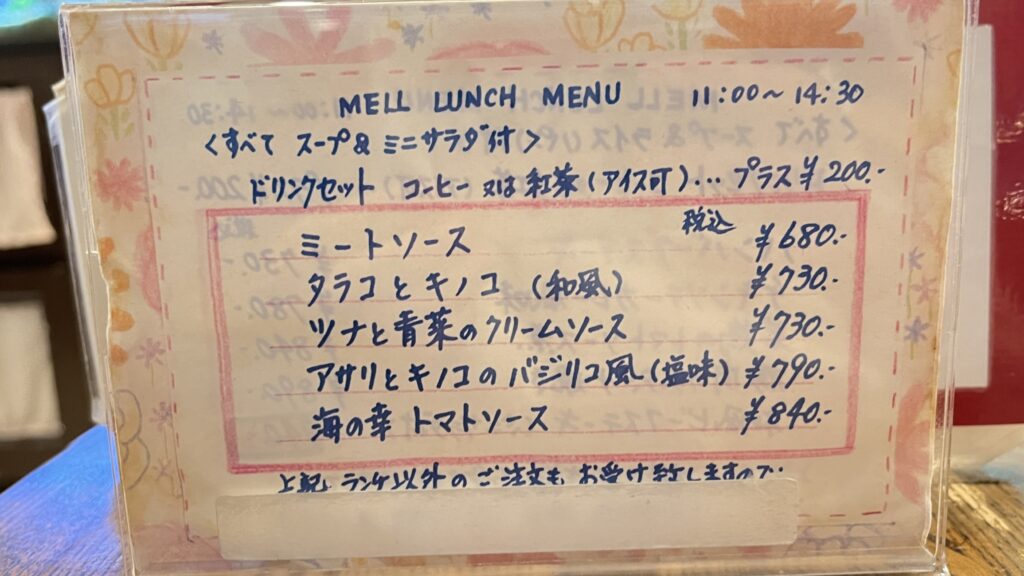 MELL LUNCH MENU 11:00~14:30
<すべて スープ& ミニサラダ付>
ドリンクセット コーヒー 又は 紅茶(アイス可)… プラス ¥200.-
税込
ミートソース ¥680.-
タラコとキノコ (和風) ¥730.-
ツナと青菜のクリームソース ¥730.-
アサリとキノコのバジリコ風(塩味) ¥790.-
海の幸 トマトソース ¥840.-
上記 ランチ以外の ご注文も お受け致しますので